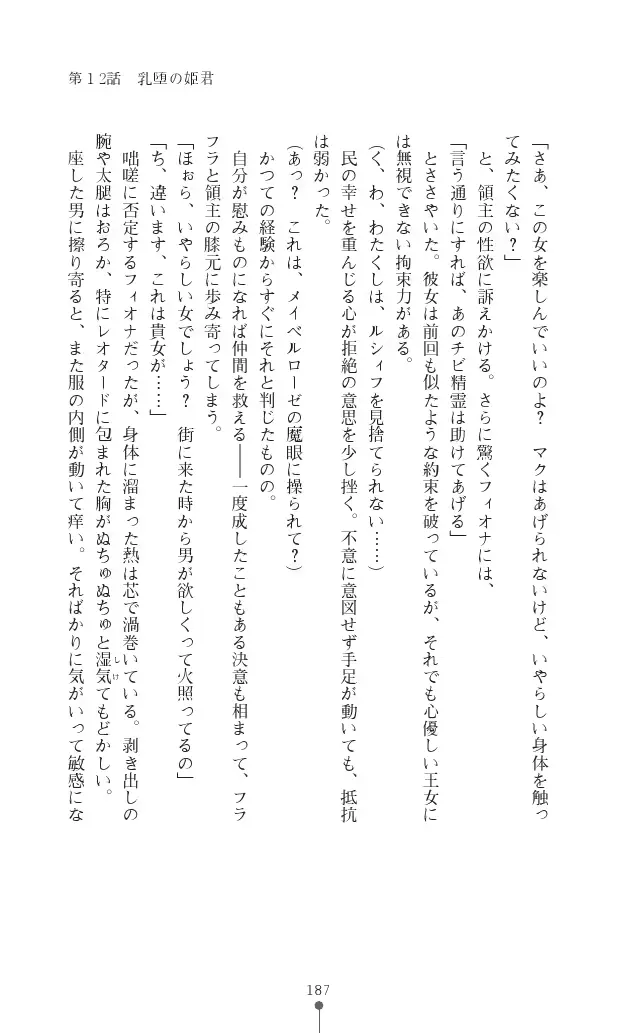 第12話　乳堕の姫君
「さあ、この女を楽しんでいいのよ？　マクはあげられないけど、いやらしい身体を触っ
てみたくない？」
と、領主の性欲に訴えかける。さらに驚くフィオナには、
「言う通りにすれば、あのチビ精霊は助けてあげる」
とささやいた。彼女は前回も似たような約束を破っているが、それでも心優しい王女に
は無視できない拘束力がある。
（く、わ、わたくしは、ルシィフを見捨てられない……）
民の幸せを重んじる心が拒絶の意思を少し挫く。不意に意図せず手足が動いても、抵抗
は弱かった。
（あっ？　これは、メイベルローゼの魔眼に操られて？）
かつての経験からすぐにそれと判じたものの。
自分が慰みものになれば仲間を救える――一度成したこともある決意も相まって、フラ
フラと領主の膝元に歩み寄ってしまう。
「ほぉら、いやらしい女でしょう？　街に来た時から男が欲しくって火照ってるの」
「ち、違います、これは貴女が……」
咄嗟に否定するフィオナだったが、身体に溜まった熱は芯で渦巻いている。剥き出しの
腕や太腿はおろか、特にレオタードに包まれた胸がぬちゅぬちゅと湿気てもどかしい。
しけ
座した男に擦り寄ると、また服の内側が動いて痒い。そればかりに気がいって敏感にな
187